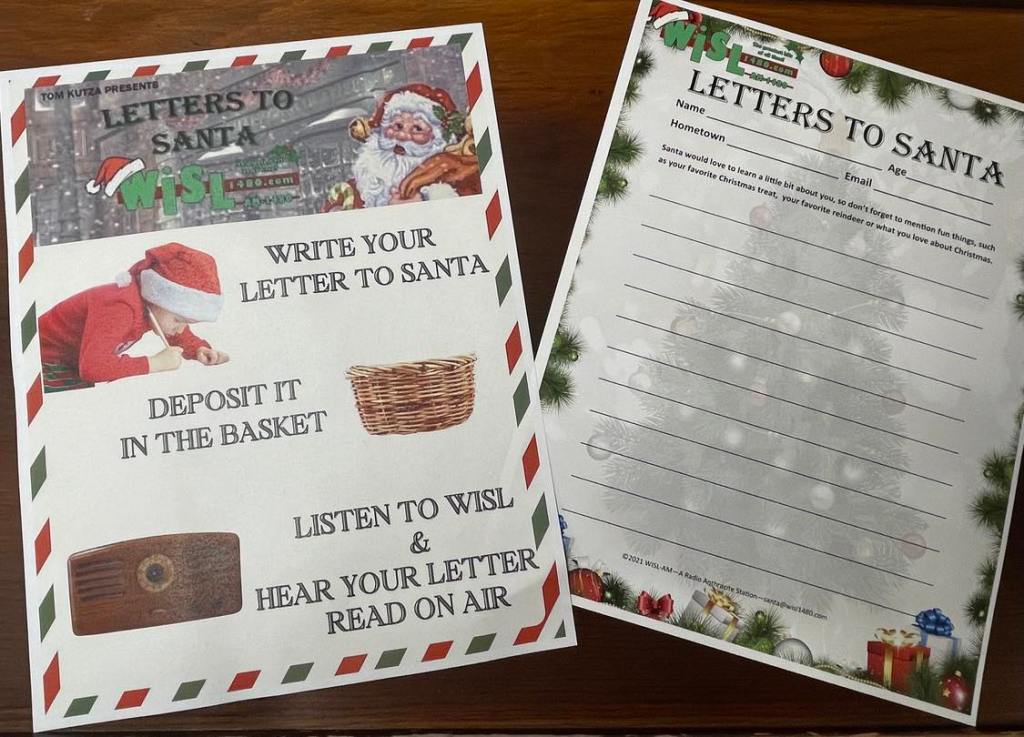 TOM KUTZA PRESENTS
LETTERS TO
SANTA
WiSL
1480.com
AM-1480
WRITE YOUR
LETTER TO SANTA
DEPOSIT IT
IN THE BASKET
LISTEN TO WISL
&
HEAR YOUR LETTER
READ ON AIR
WiSL
The greatest hits
of all time!
1480.com
AM-1480
LETTERS TO SANTA
Name Age
Hometown Email
Santa would love to learn a little bit about you, so don't forget to mention fun things, such
as your favorite Christmas treat, your favorite reindeer or what you love about Christmas.
©2021 WISL-AM—A Radio Anthracite Station—santa@wisl1480.com